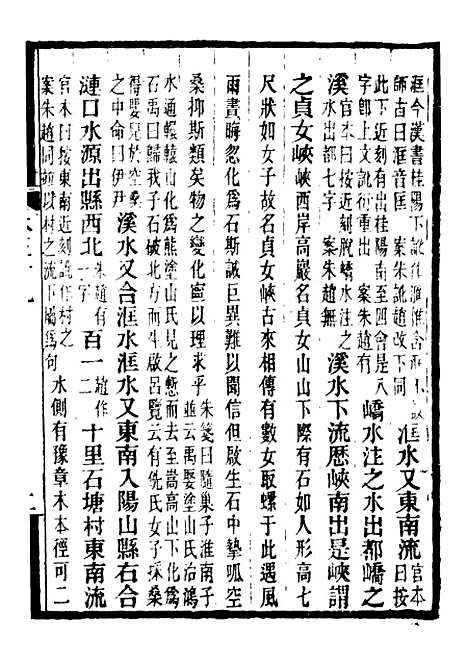 洭今漢書桂陽下訛作滙惟含洭不誤
師古曰洭音匡　案朱訛趙改下同
洭水又東南流
官本
曰按
此下近刻有出桂陽南至四會是八
字卽上文訛衍重出　案朱趙有
嶠水注之水出都嶠之
溪
官本曰按近刻脫嶠水注之
水出都七字　案朱趙無
溪水下流歷峽南出是峽謂
之貞女峽峽西岸高巖名貞女山山下際有石如人形高七
尺狀如女子故名貞女峽古來相傳有數女取螺于此遇風
雨晝晦忽化爲石斯誠巨異難以聞信但啟生石中摯呱空
桑抑斯類矣物之變化寧以理求乎
朱箋曰隨巢子淮南子
並云禹娶塗山氏治鴻
水通轘轅山化爲熊塗山氏見之慙而去至嵩高山下化爲
石禹曰歸我子石破北方而生啟呂覽云有侁氏女子採桑
得嬰兒於空桑
之中命曰伊尹
溪水又合洭水洭水又東南入陽山縣右合
漣口水源出縣西北
朱趙有
一字
百一
趙作
二
十里石塘村東南流
官本曰按東南近刻訛作村之
案朱趙同趙以村之流下屬爲句
水側有豫章木本徑可二